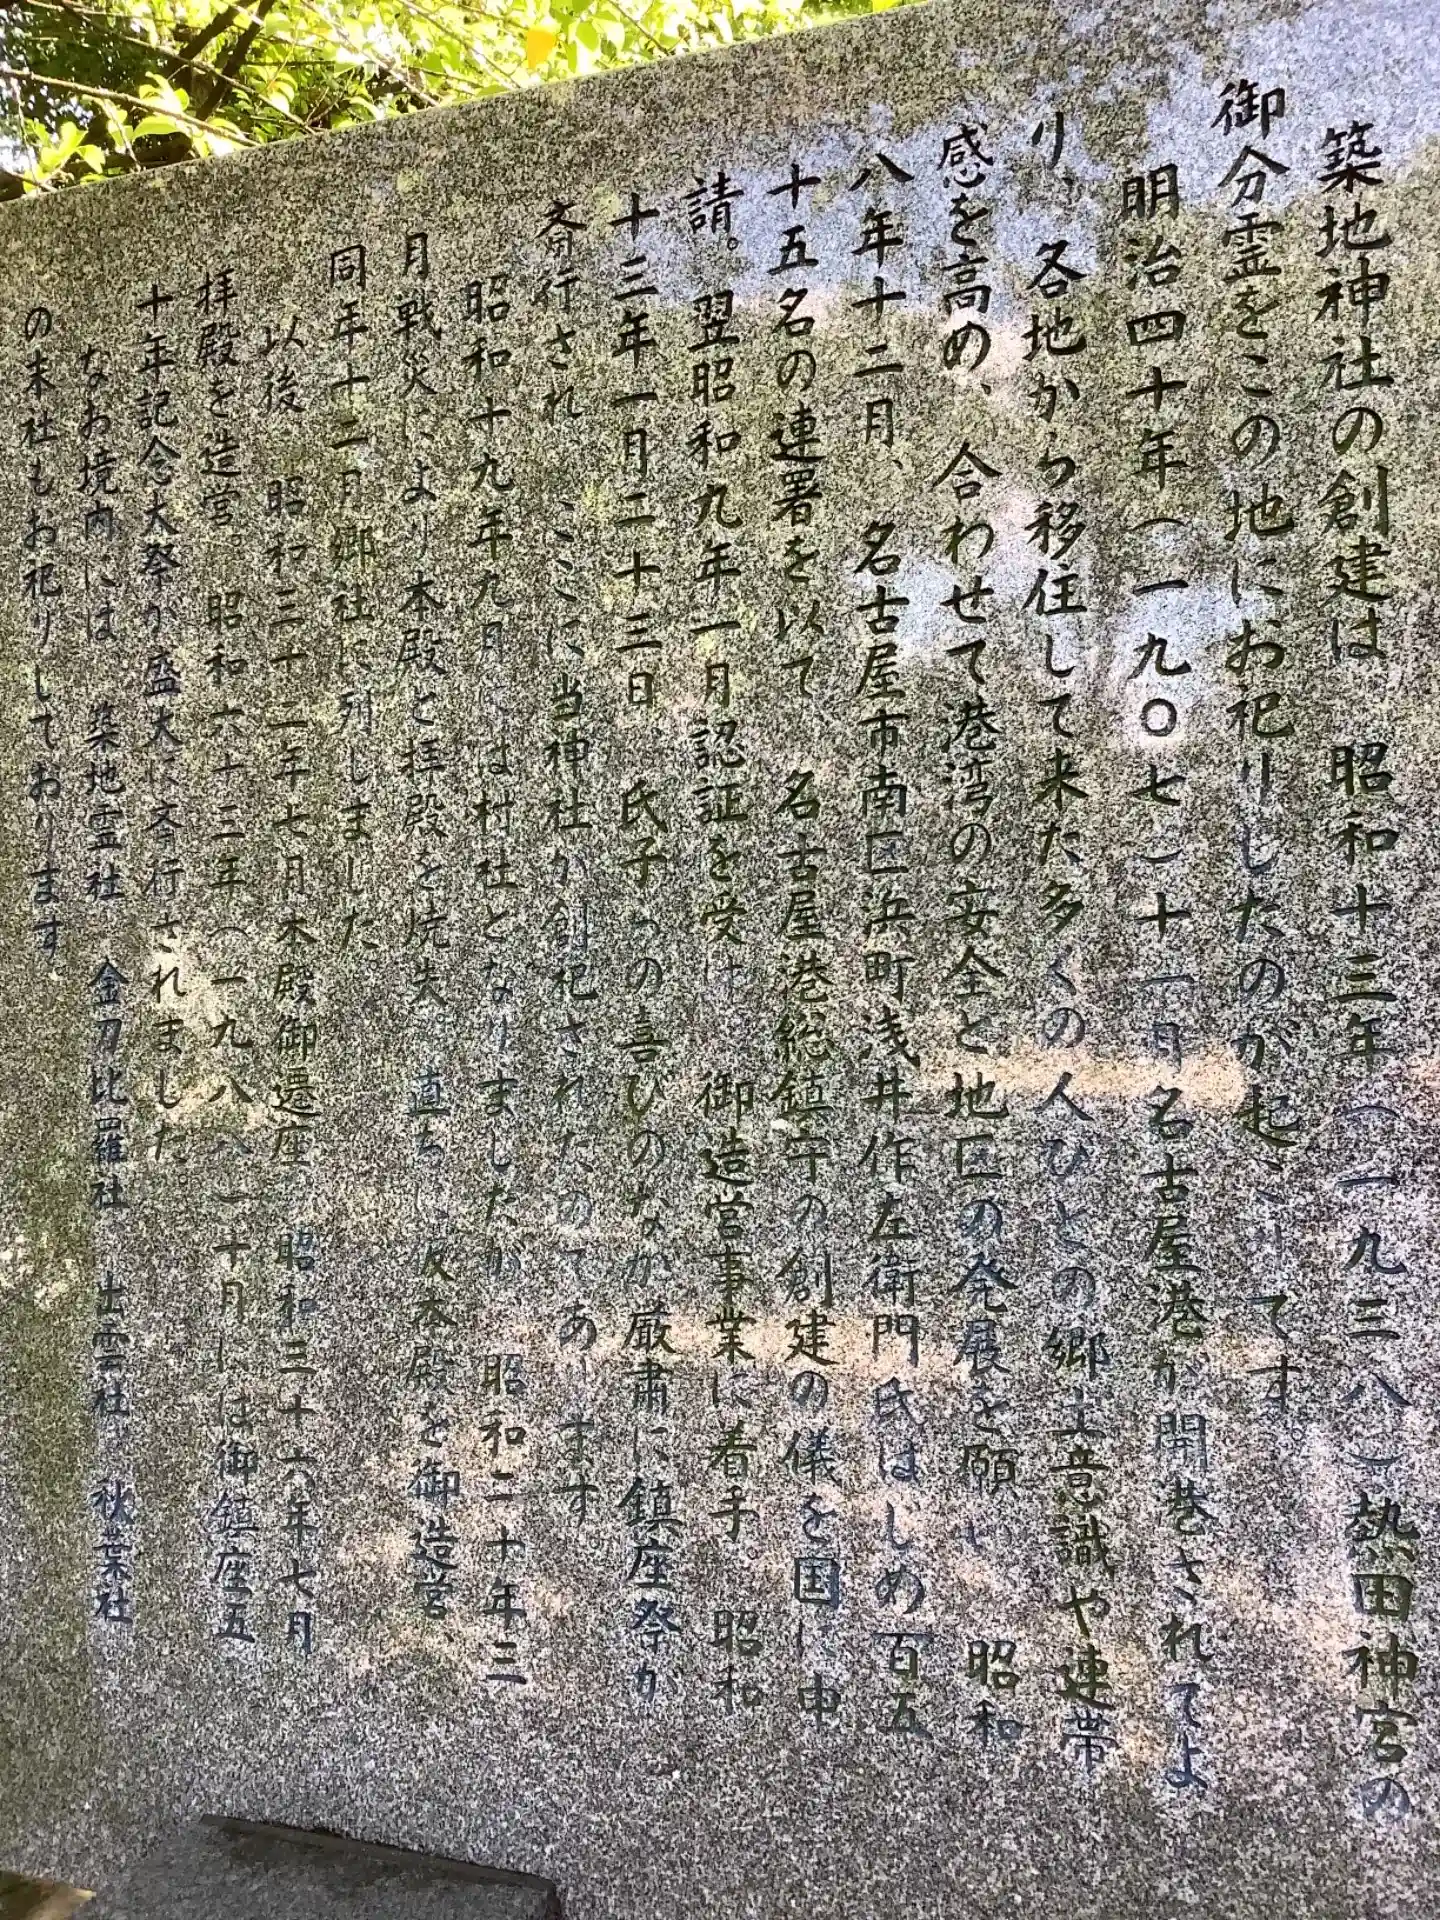 築地神社の創建は 昭和十三年(一九三八)熱田神宮の
御分霊をこの地にお祀りしたのが起こりです。
明治四十年(一九〇七)十一月名古屋港が開港されてよ
り、各地から移住して来た多くの人びとの郷土意識や連帯
感を高め、合わせて港湾の安全と地区の発展を願い 昭和
八年十二月、名古屋市南区浜町浅井作左衛門氏はしめ百五
十五名の連署を以て 名古屋港総鎮守の創建の儀を国に申
請。翌昭和九年一月認証を受け 御造営事業に着手。昭和
十三年一月二十三日 氏子らの喜びのなか厳粛に鎮座祭が
斎行され、ここに当神社が創祀されたのであります。
昭和十九年九月には村社となりましたが 昭和二十年三
月戦災により本殿と拝殿を焼失。直ちに仮本殿を御造営、
同年十二月郷社に列しました。
以後 昭和三十二年七月本殿御遷座、昭和三十六年七月
拝殿を造営。昭和六十三年(一九八八)十月には御鎮座五
十年記念大祭が盛大に斎行されました。
なお境内には 築地霊社 金刀比羅社 土霊社 秋葉社
の末社もお祀りしております。